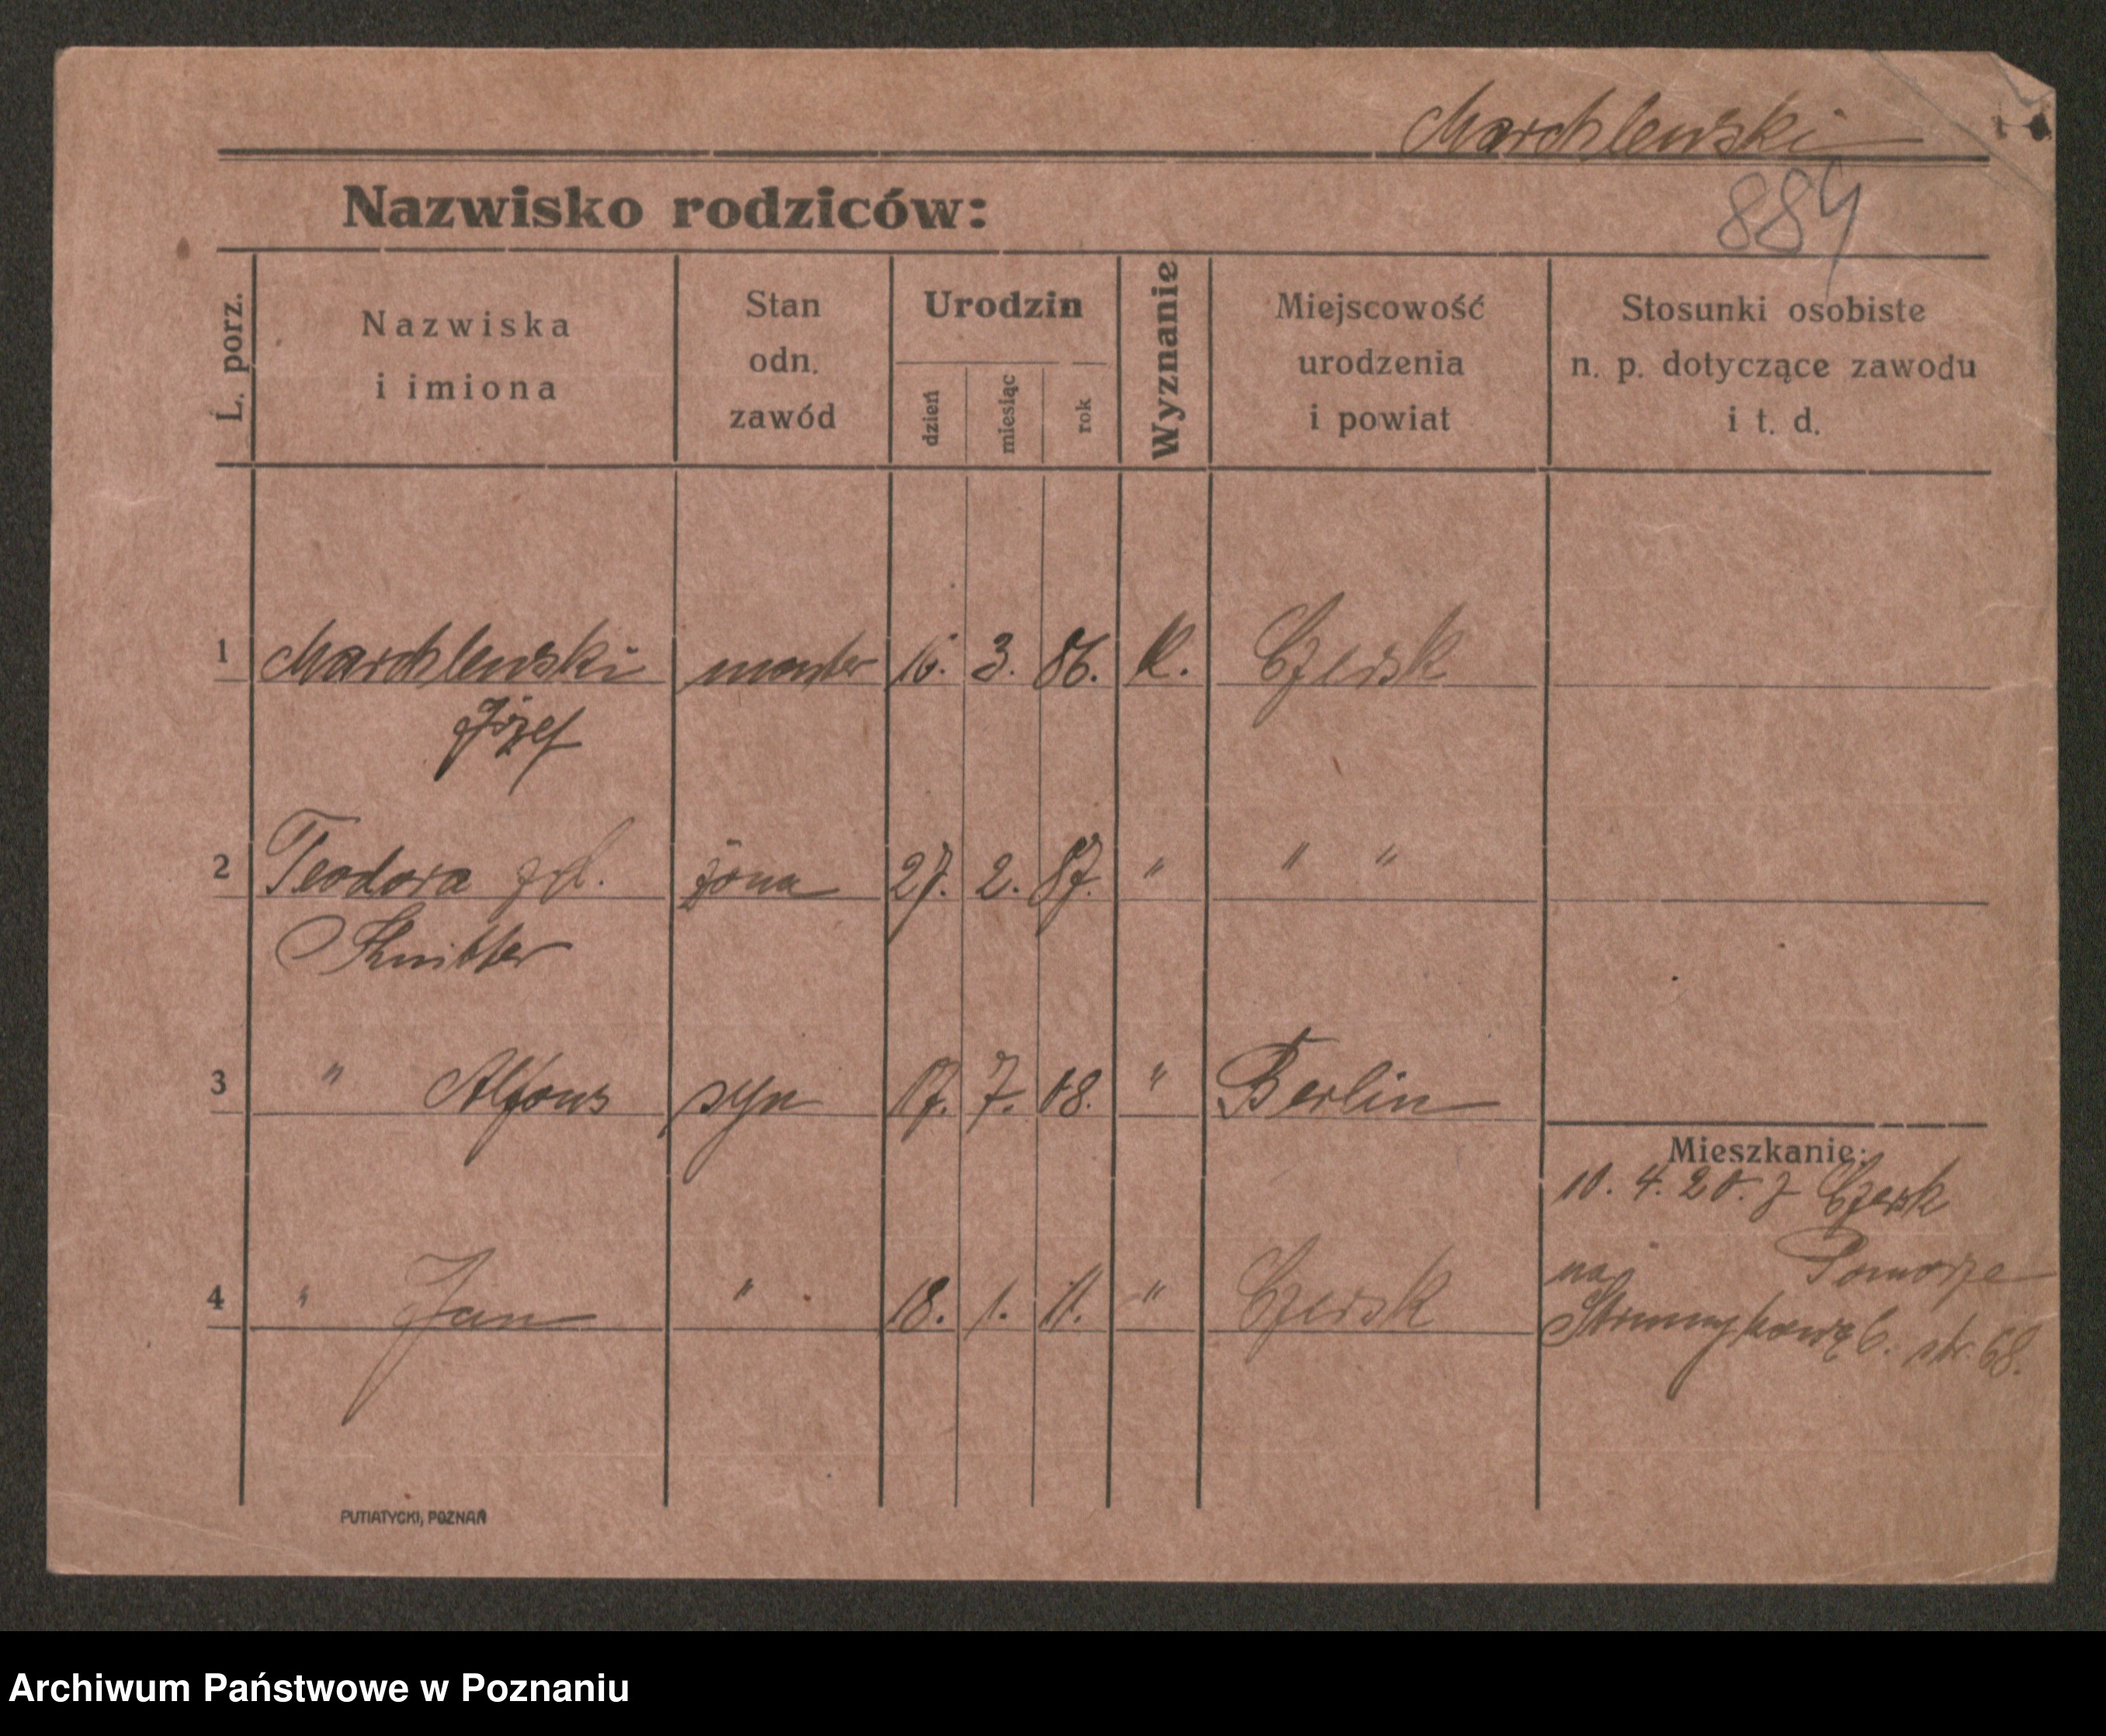 Marchlewski
884
Nazwisko rodziców:
L. porz.
Nazwiska
i imiona
Stan
odn.
zawód
Urodzin
dzień
miesiąc
rok
Wyznanie
Miejscowość
urodzenia
i powiat
Stosunki osobiste
n. p. dotyczące zawodu
i t. d.
1 Marchlewski monter 16. 3. 86. K. Czersk
Józef
2 Teodora żona 27. 2. 87. " " "
Knitter
3 " Alfons syn 17. 7. 08. " Berlin
Mieszkanie:
10. 4. 20. z Czersk
na Pomorze
4 " Jan " 18. 1. 11. " Czersk
str. 68.
PUTIATYCKI, POZNAŃ
Archiwum Państwowe w Poznaniu